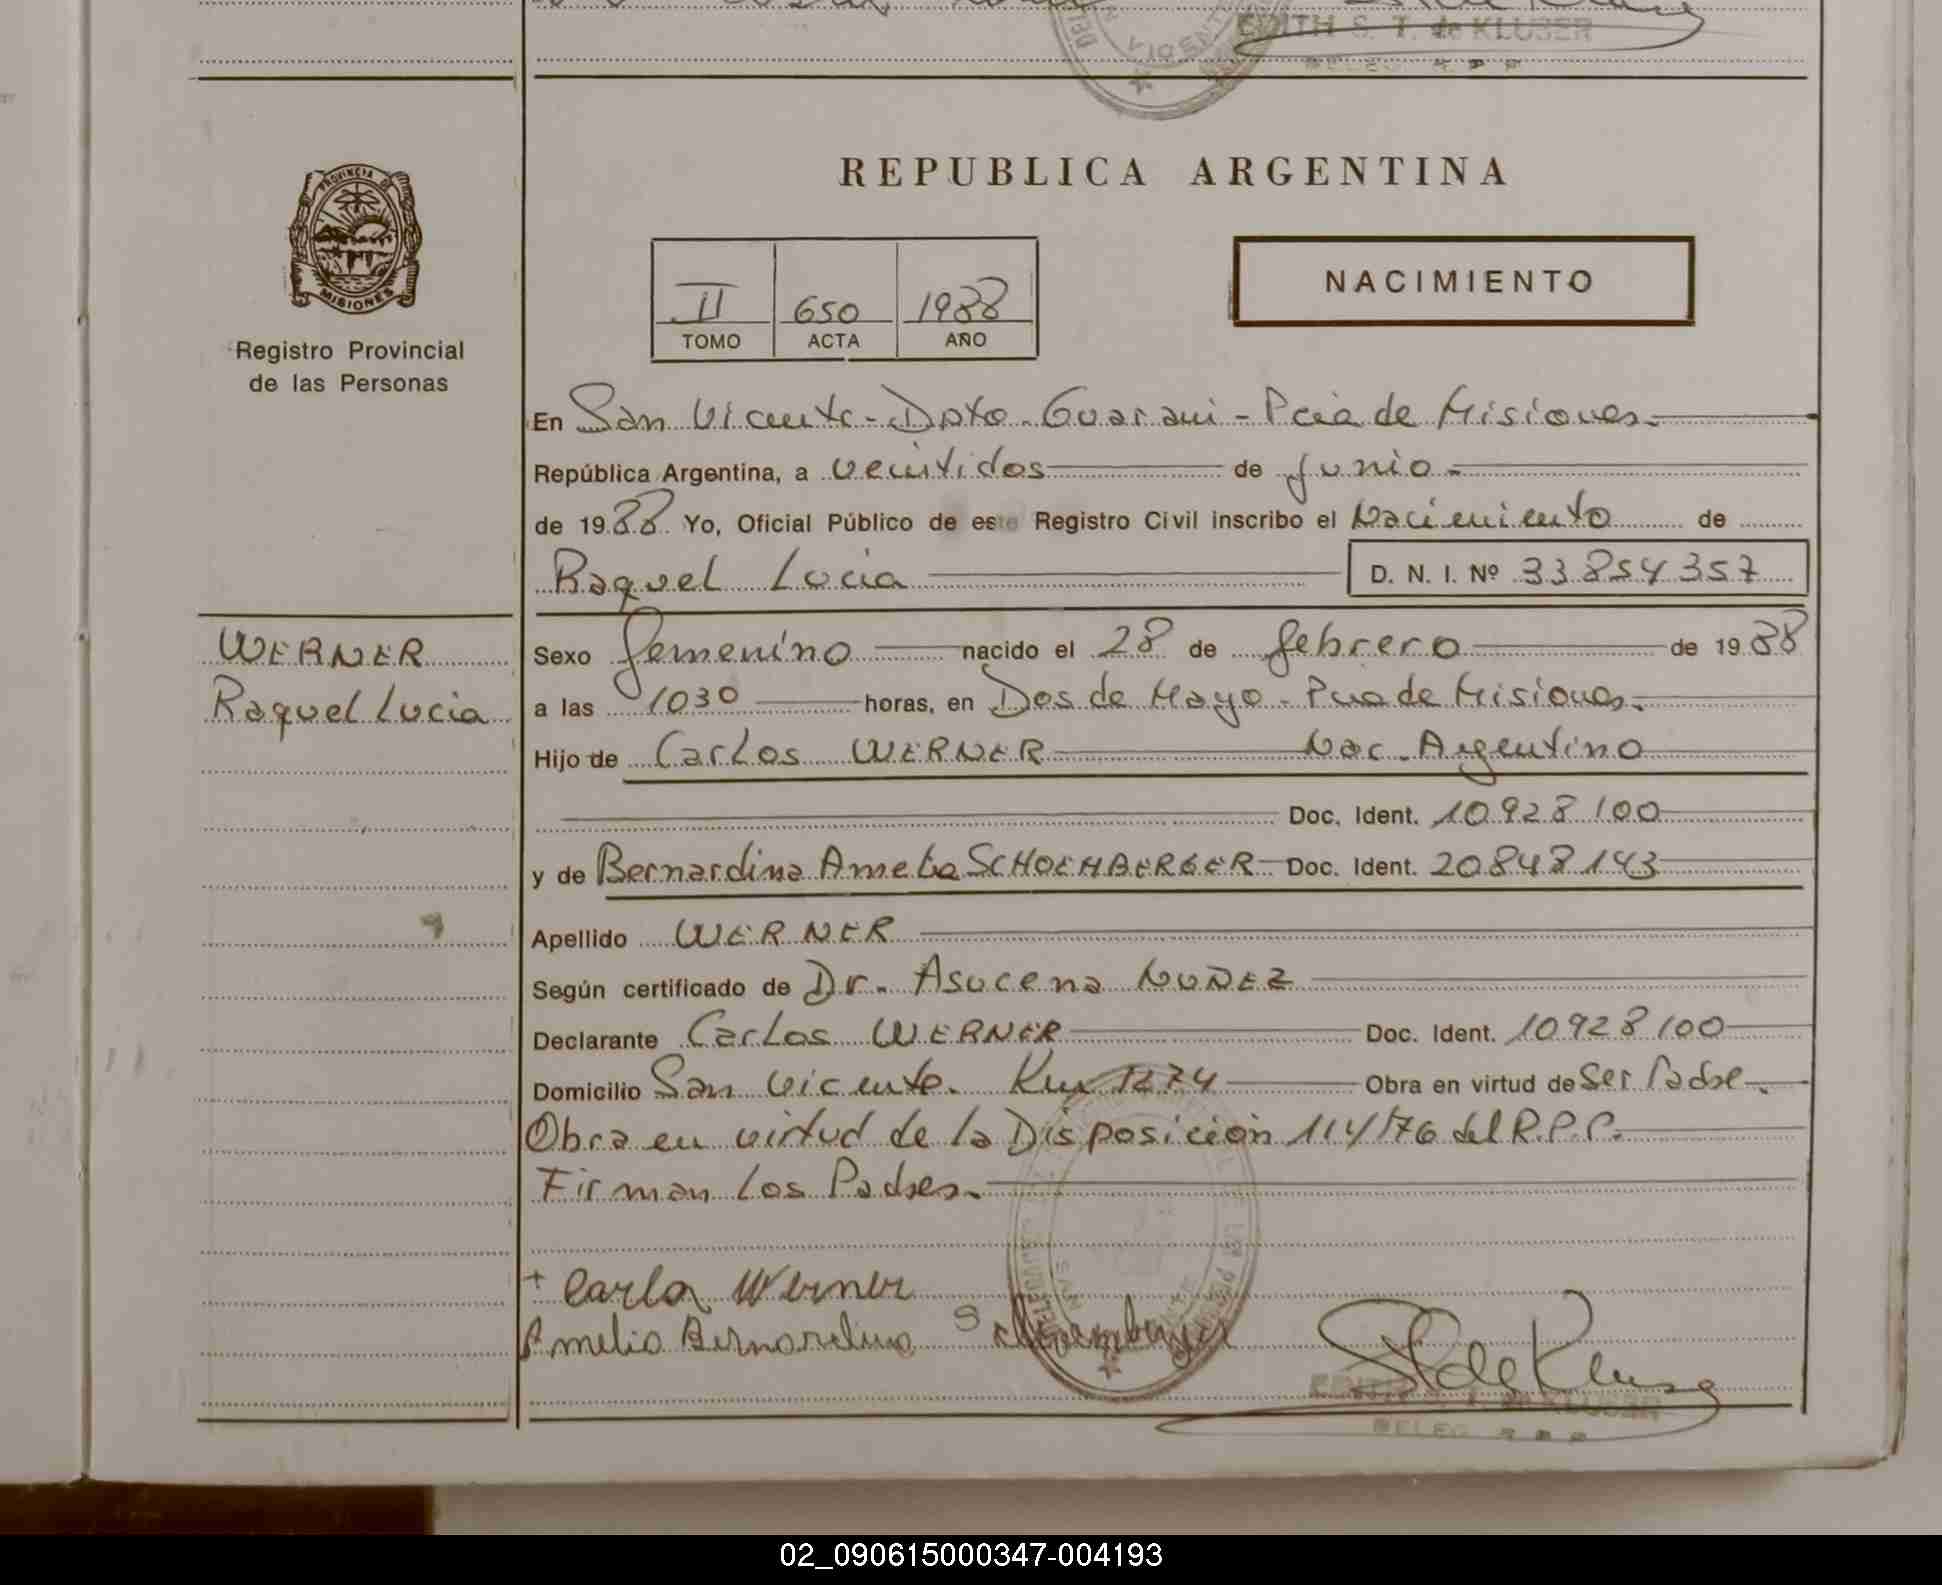 EDITH S. T. de KLUSER
DELEG. R P P
VICENTE
REPUBLICA ARGENTINA
PROVINCIA DE
MISIONES
Registro Provincial
de las Personas
II 650 1988
TOMO ACTA AÑO
NACIMIENTO
En San Vicente - Dpto. Guarani - Pcia de Misiones.
República Argentina, a veintidos de junio.
de 1988 Yo, Oficial Público de este Registro Civil inscribo el Nacimiento de
Raquel Lucia D. N. I. Nº 33854357
WERNER
Raquel Lucia
Sexo femenino nacido el 28 de febrero de 1988
a las 1030 horas, en Dos de Mayo - Pcia de Misiones.
Hijo de Carlos WERNER Nac. Argentino
Doc. Ident. 10928100
y de Bernardina Amelia SCHOEMBERGER Doc. Ident. 20848143
Apellido WERNER
Según certificado de Dr. Asucena NUÑEZ
Declarante Carlos WERNER Doc. Ident. 10928100
Domicilio San Vicente. Km 1274 Obra en virtud de Ser Padre.
Obra en virtud de la Disposición 114/76 del R.P.P.
Firman los Padres.
+ Carlos Werner
Amelia Bernardina Schoemberger
EDITH S. T. de KLUSER
DELEG. R P P
02_090615000347-004193